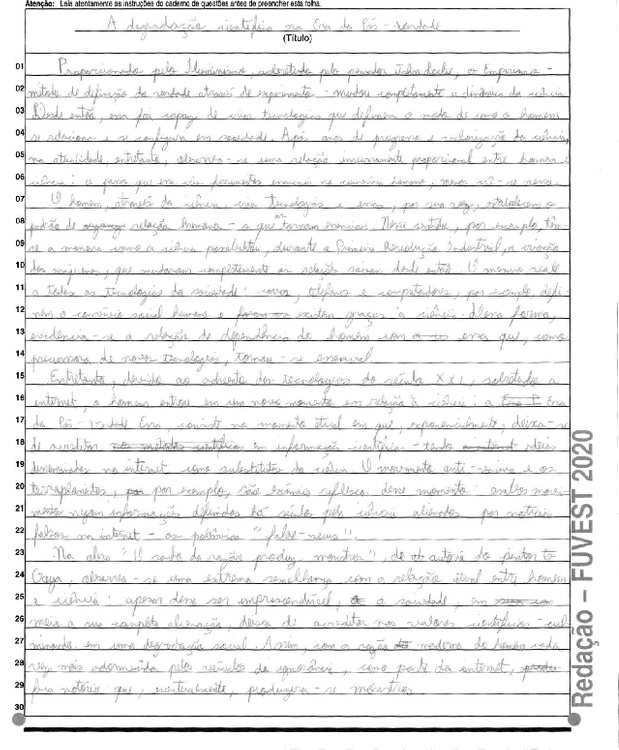 Atenção: Leia atentamente as instruções do caderno de questões antes de preencher esta folha.
A degradação científica na Era da Pós-verdade
(Título)
01 Proporcionado pelo Iluminismo, sobretudo pelo pensador John Locke, o Empirismo -
02 método de definição da verdade através de experimentos - mudou completamente a dinâmica da ciência
03 Desde então, essa foi capaz de criar tecnologias que definem o modo de como o homem
04 se relaciona e se configura em sociedade. Após anos de progresso e valorização da ciência,
05 na atualidade, entretanto, observa-se uma relação inversamente proporcional entre homem e
06 ciência: a para que essa cria ferramentas essenciais na humano, menos vê-se nessa.
07 O homem, através da ciência, cria tecnologias e essas, por sua vez, estabelecem o
08 padrão de relação humana - o que as tornam essenciais. Nesse sentido, por exemplo, têm-
09 se a maneira como a ciência possibilitou, durante a Primeira Revolução Industrial, a criação
10 das máquinas, que mudaram completamente as relações sociais desde então. O mesmo vale
11 a todas as tecnologias da sociedade: carros, telefones e computadores, por exemplo, defi-
12 nem o convívio social humano e existem graças à ciência. Dessa forma,
13 evidencia-se a relação de dependência do homem com essa que, como
14 precursora de novas tecnologias, tornou-se essencial.
15 Entretanto, devido ao advento das tecnologias do século XXI, sobretudo a
16 internet, o homem entrou em um novo momento em relação à ciência: a Era
17 da Pós-verdade. Essa, consiste no momento atual em que, exponencialmente, deixa-se
18 de acreditar em informações científicas - tendo ideias
19 disseminadas na internet como substitutas da ciência. O movimento anti-vacina e os
20 terraplanistas, por exemplo, são exímios reflexos desse momento: ambos movi-
21 mentos negam informações definidas há séculos pela ciência alienados por notícias
22 falsas na internet - as polêmicas "fake-news".
23 Na obra "O sonho da razão produz monstros", de autoria do pintor
24 Goya, observa-se uma extrema semelhança com a relação atual entre homem
25 e ciência: apesar dessa ser imprescindível, a sociedade, em
26 meio a sua completa alienação, deixa de acreditar nos valores científicos - cul-
27 minando em uma degradação social. Assim, com a razão moderna do homem cada
28 vez mais adormecida pelos veículos da ignorância, como parte da internet,
29 fica notório que, eventualmente, produzira-se monstros.
30
Redação – FUVEST 2020